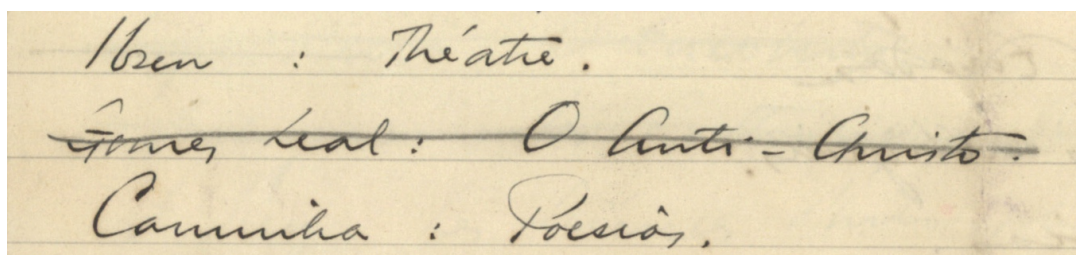 Ibsen : Théatre.
Gomes Leal : O Anti-Christo.
Caminha : Poesias.